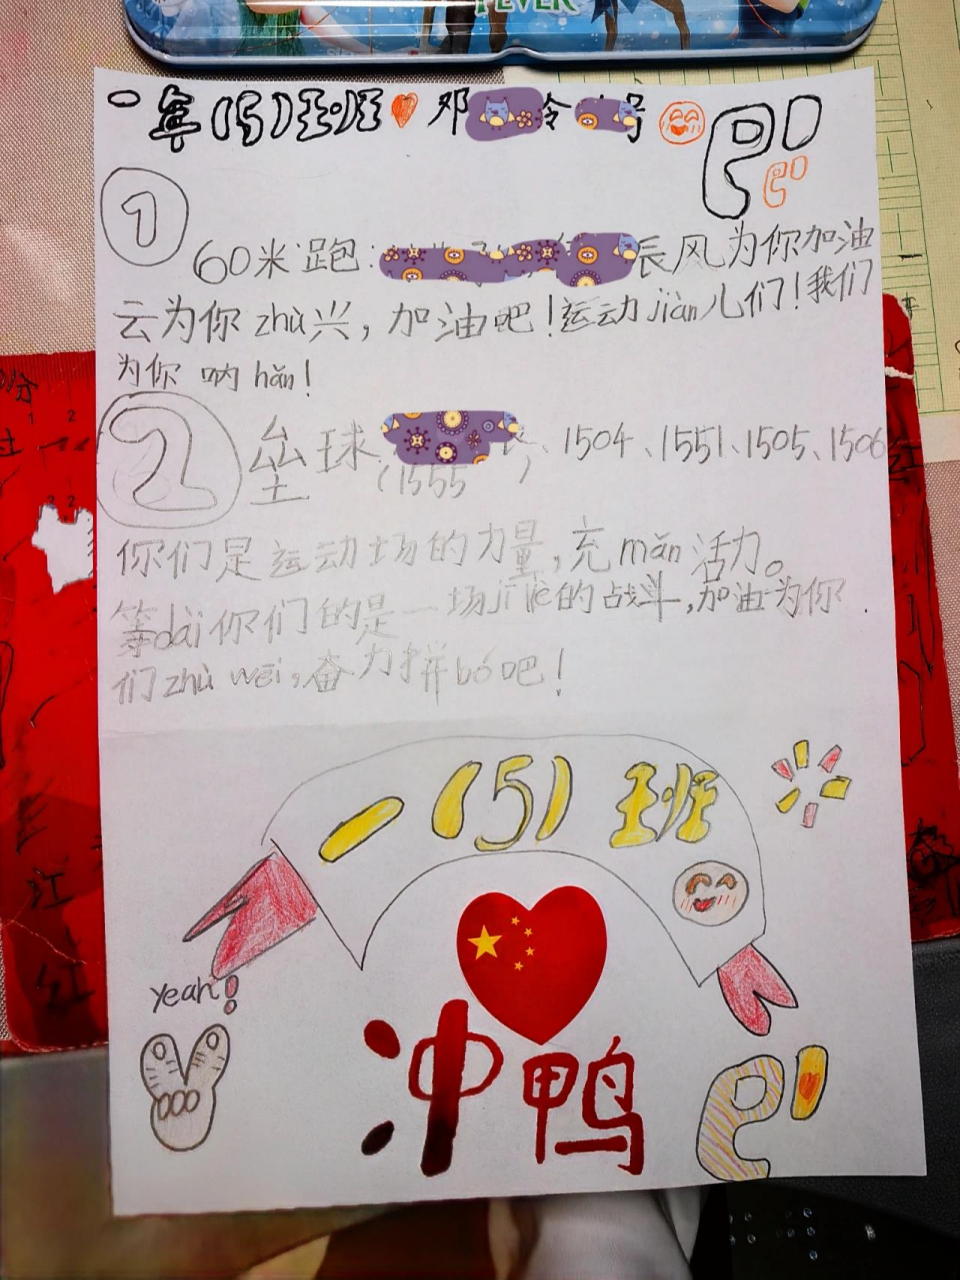 FEVER
一年(5)班班 邓 铃 号
1
60米跑: 辰风为你加油
云为你zhù兴,加油吧!运动jiàn儿们!我们
为你呐hǎn!
2 垒球 、1504、1551、1505、1506
(1555 )
你们是运动场的力量,充mǎn活力。
等dài你们的是一场jī liè的战斗,加油为你
们zhù wēi,奋力拼bó吧!
一(5)班
yeah!
冲鸭